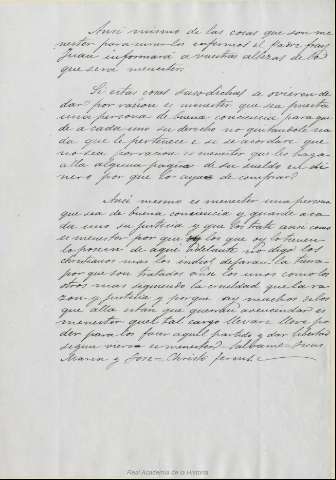 Ansi mismo de las cosas que son me
nester para curar los enfermos el padre fray
Juan informará a vuestras altezas de lo
que será menester.
Si estas cosas susodichas se ovieren de
dar por racion es menester que sea puesta
una persona de buena conciencia para que
de a cada uno su derecho no quitandole na
da que le pertenece e si se acordare que
no sea por racion es menester que les haga
alla alguna paga de su sueldo en di
nero por que lo ayan de comprar
Ansi mesmo es menester una persona
que sea de buena conciencia y guarde a ca
da uno su justicia y que los trate ansi como
es menester por que los que oy lo tienen
lo ponen de aqui adelante digo los
christianos mas los indios dejaran la tierra
por que son tratados asi los unos como los
otros mas segun la crueldad que la ra
zon y justicia y porque ay muchos de los
que alla estan que querran avecindar es
menester quel tal cargo llevare lleve po
der para les facer aquel partido y dar libertad
segun viere es menester Salvame Jesus
Maria y Jose = Christo ferens. =
Real Academia de la Historia